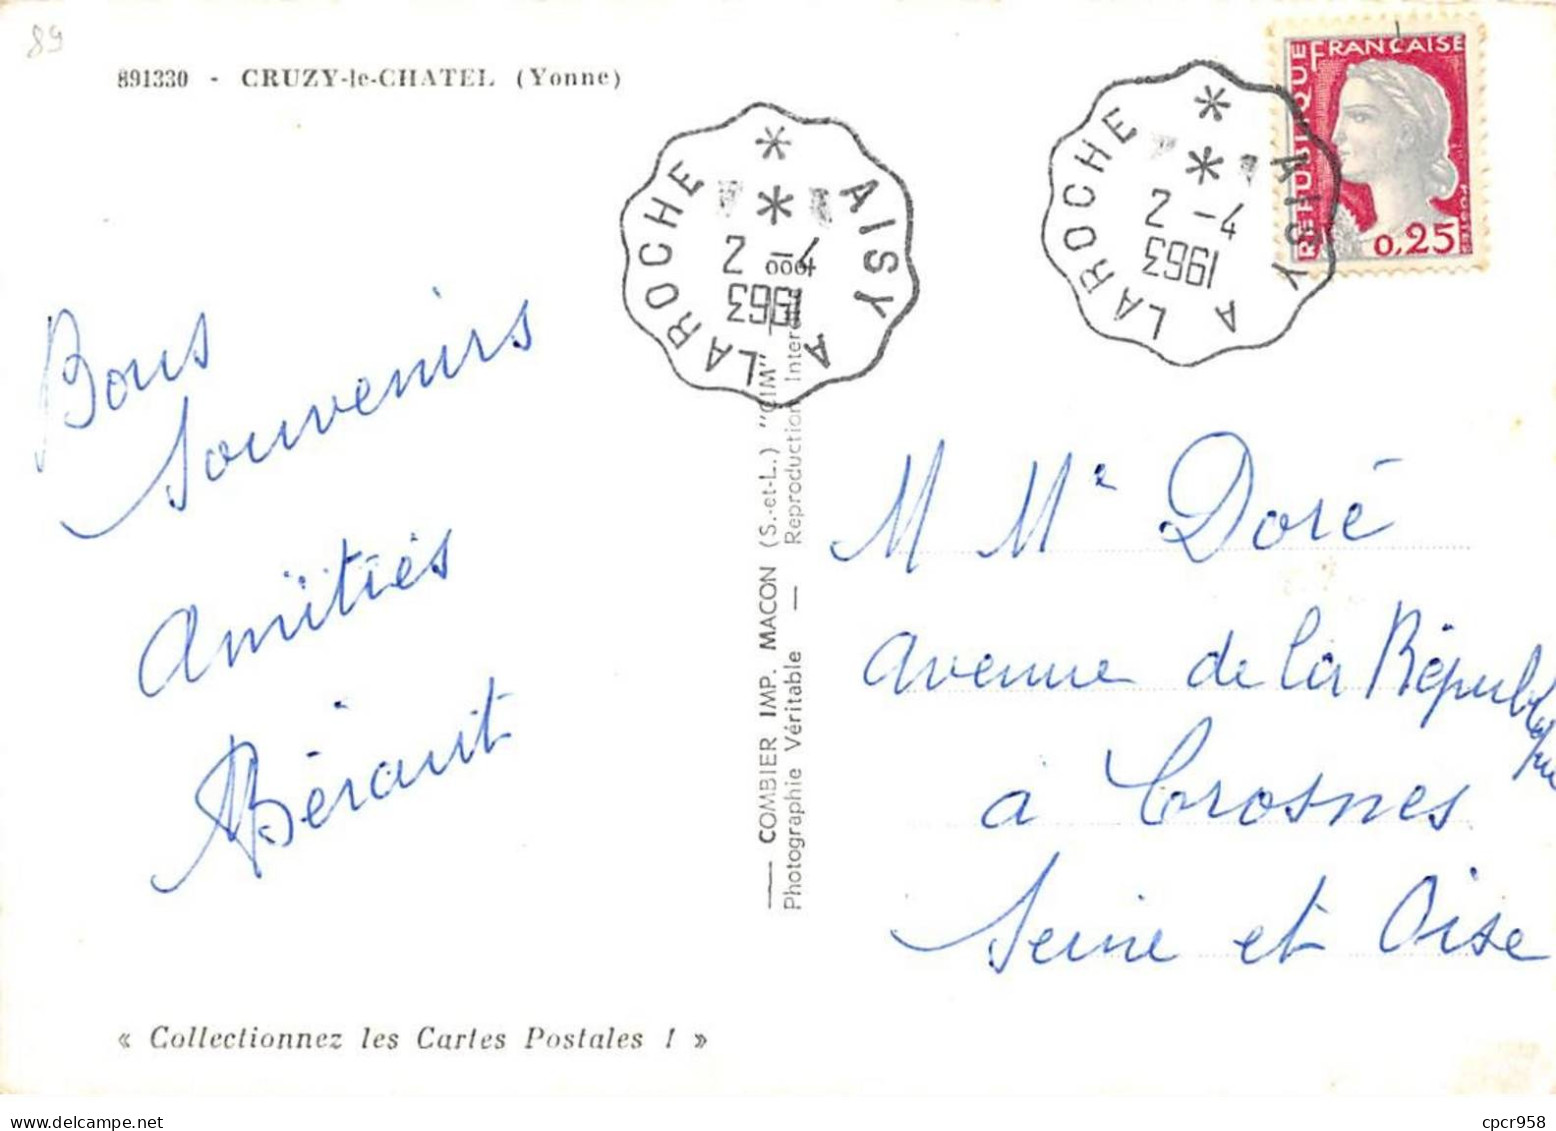 89
891330 - CRUZY-le-CHATEL (Yonne)
AISY A LAROCHE
7-2
1963
AISY A LAROCHE
7-2
1963
REPUBLIQUE FRANÇAISE
0,25
Bons
Souvenirs
Amitiés
Bérault
COMBIER IMP. MACON (S.-et-L.) "CIM"
Photographie Véritable — Reproduction Inter
M Me Doré
avenue de la République
à Crosnes
Seine et Oise
« Collectionnez les Cartes Postales ! »
cpcr958